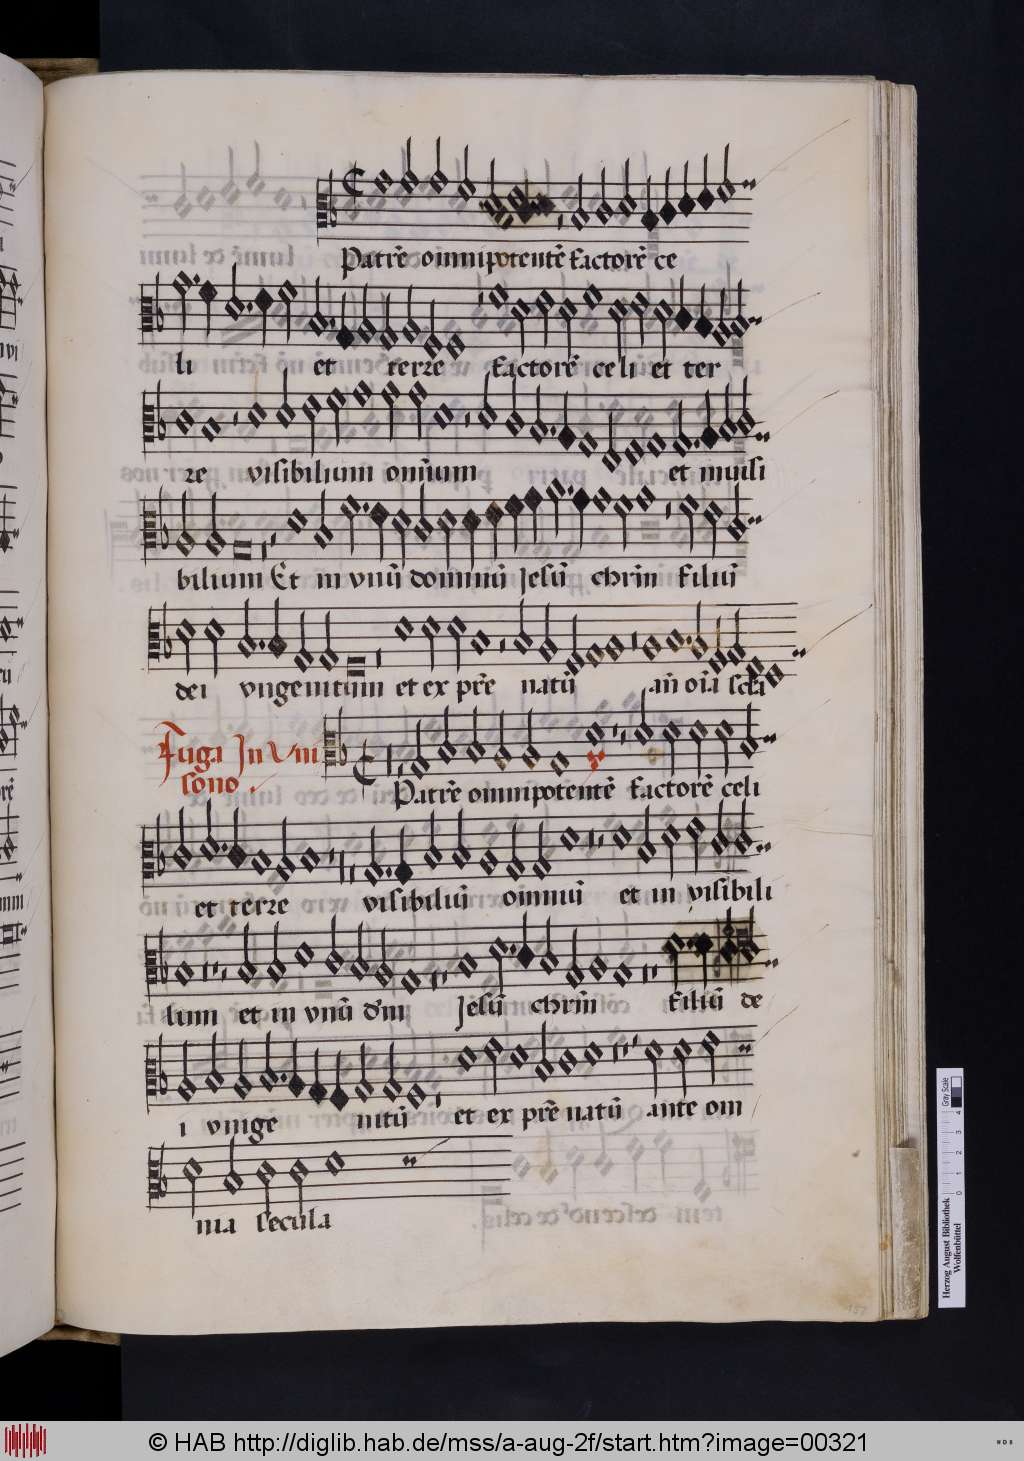 Patrē omnipotentē factorē ce
li et terre factorē celi et ter
re visibilium omīum et inuisi
bilium Et in vnū dominū Jesū chrm̄ filiū
dei vngenitum et ex prē̄ natū an̄ oīa scła
Fuga In Vni
sono
Patrē omnipotentē factorē celi
et terre visibiliū omniū et in visibili
lium et in vnū dn̄m Jesū chrm̄ filiū de
i vnige nitū et ex prē natū ante om
nia secula
157
Herzog August Bibliothek
Wolfenbüttel
Gray Scale
0 1 2 3 4
© HAB http://diglib.hab.de/mss/a-aug-2f/start.htm?image=00321